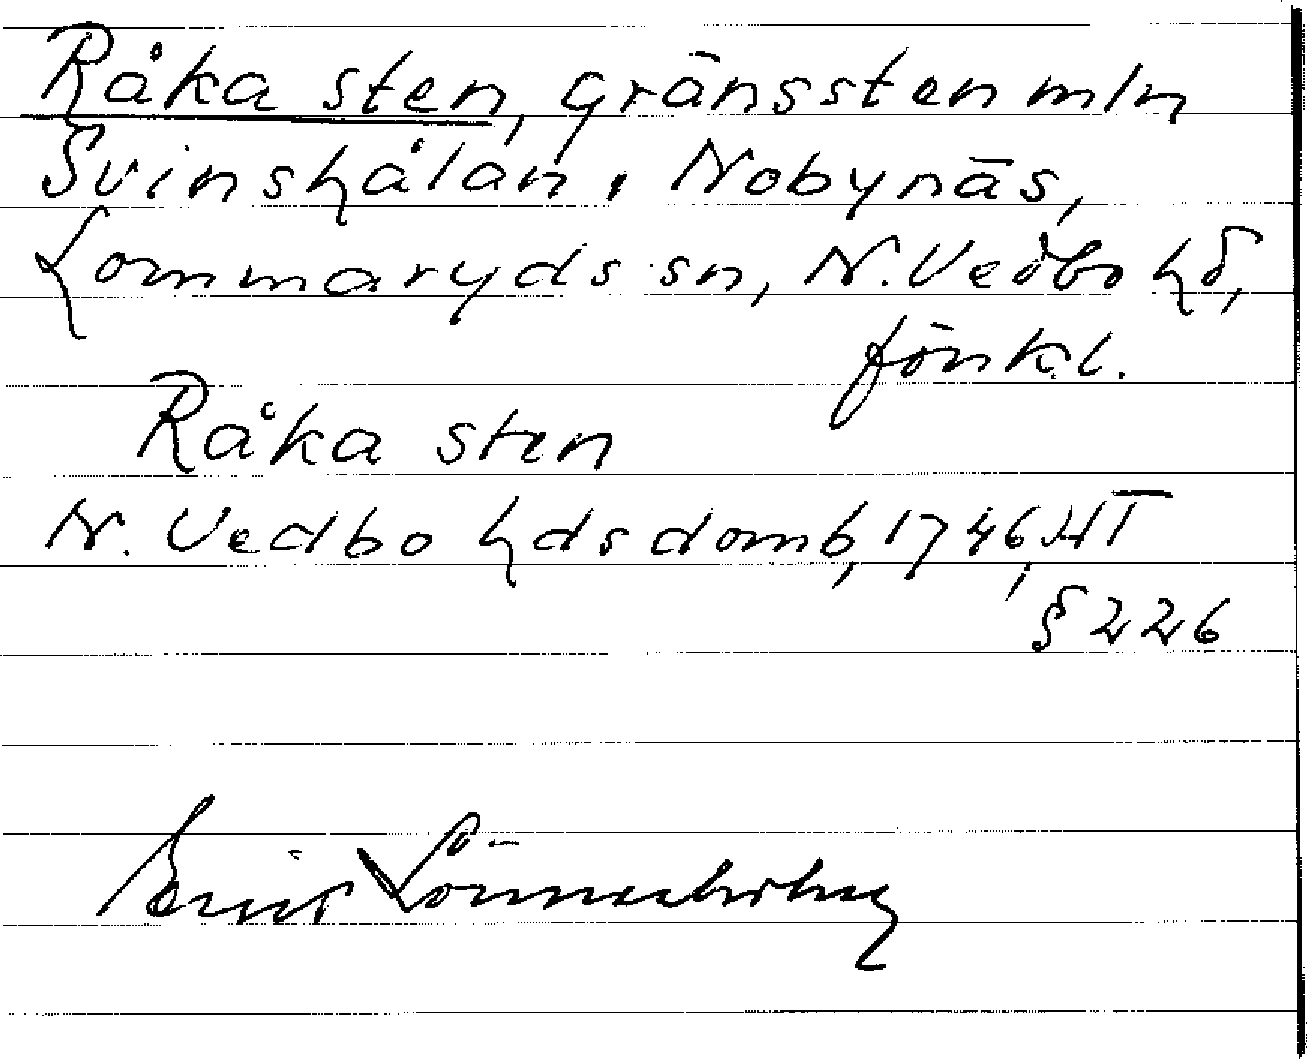 Råka sten, gränssten mln
Svinshålan, Nobynäs,
Lommaryds sn, N. Vedbo hd,
Jönk.l.
Råka sten
N. Vedbo hds domb, 1746, HT
§ 226